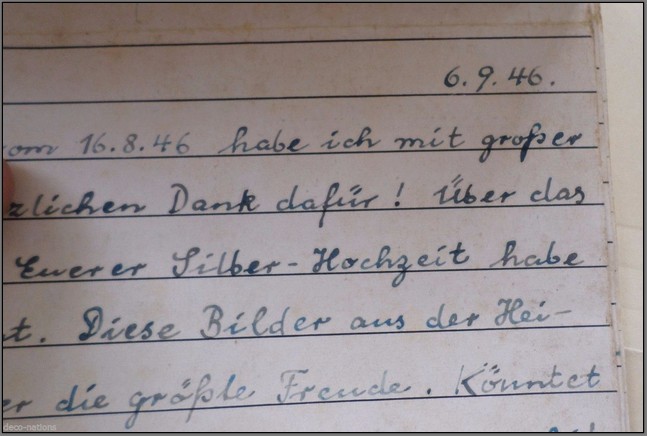 6.9.46.
vom 16.8.46 habe ich mit großer
zlichen Dank dafür! Über das
Euerer Silber-Hochzeit habe
t. Diese Bilder aus der Hei-
er die größte Freude. Könntet
deco-nations